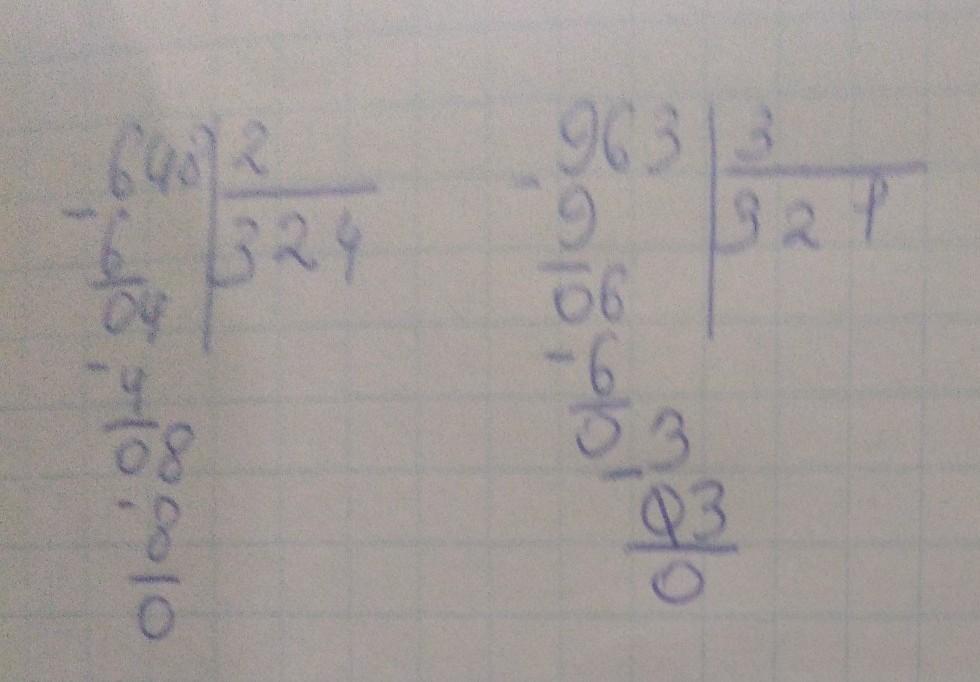 648 2
- 6 324
04
- 4
08
- 8
0
963 3
- 9 321
06
- 6
03
- 3
0